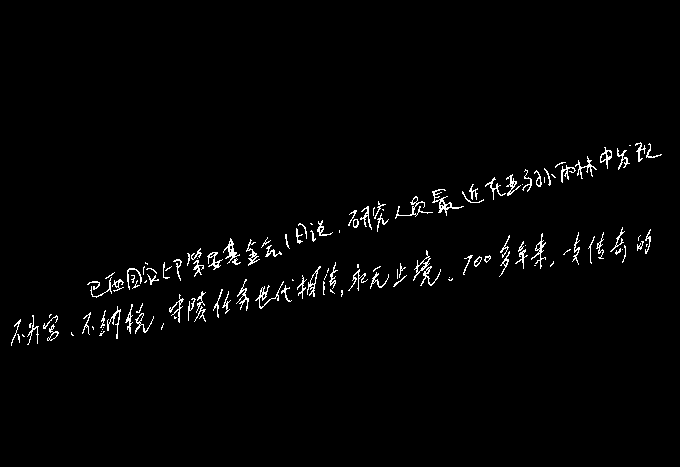 巴西国家印第安基金会1日说,研究人员最近在亚马孙雨林中发现
不升官、不纳税,守陵任务世代相传,永无止境。700多年来,一支传奇的